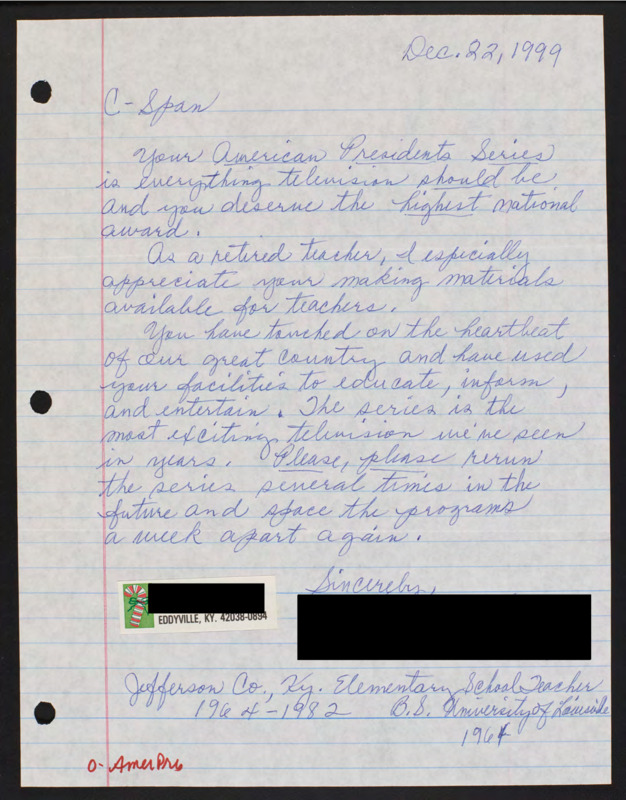 Dec. 22, 1999
C-Span
Your American Presidents Series
is everything television should be
and you deserve the highest national
award.
As a retired teacher, I especially
appreciate your making materials
available for teachers.
You have touched on the heartbeat
of our great country and have used
your facilities to educate, inform,
and entertain. The series is the
most exciting television we've seen
in years. Please, please rerun
the series several times in the
future and space the programs
a week apart again.
Sincerely,
EDDYVILLE, KY. 42038-0894
Jefferson Co., Ky. Elementary School Teacher
1964-1982 B.S. University of Louisville
1964
O- AmerPrs